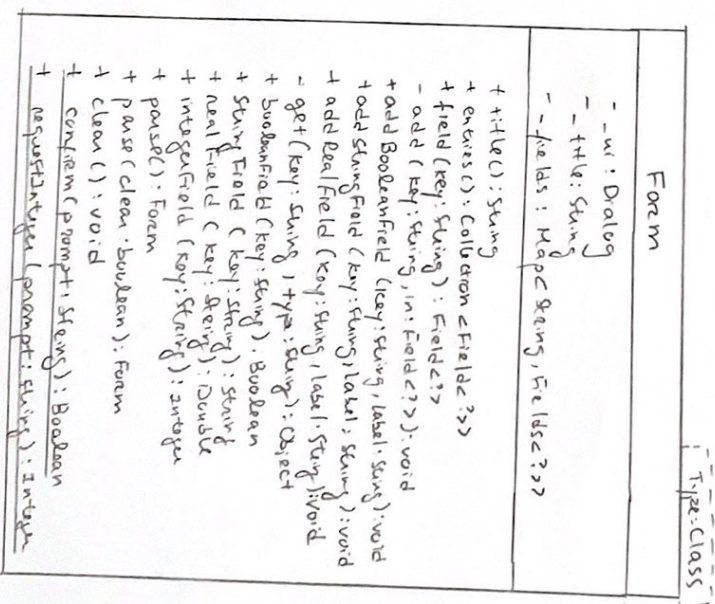 Type:Class
Form
- _ui : Dialog
- _title: String
- _fields : Map<String, Fields<?>>
+ title() : String
+ entries() : Collection <Field<?>>
+ field (key: String) : Field<?>
- add (key: String, in: Field<?>) : void
+ add BooleanField (key: String, label: String) : void
+ add StringField (key: String, label: String) : void
+ add RealField (key: String, label: String) : void
- get (key: String, type: String) : Object
+ booleanField (key: String) : Boolean
+ StringField (key: String) : String
+ realField (key: String) : Double
+ integerField (key: String) : Integer
+ parse() : Form
+ parse (clear : boolean) : Form
+ clear() : void
+ confirm (prompt: String) : Boolean
+ requestInteger (prompt: String) : Integer